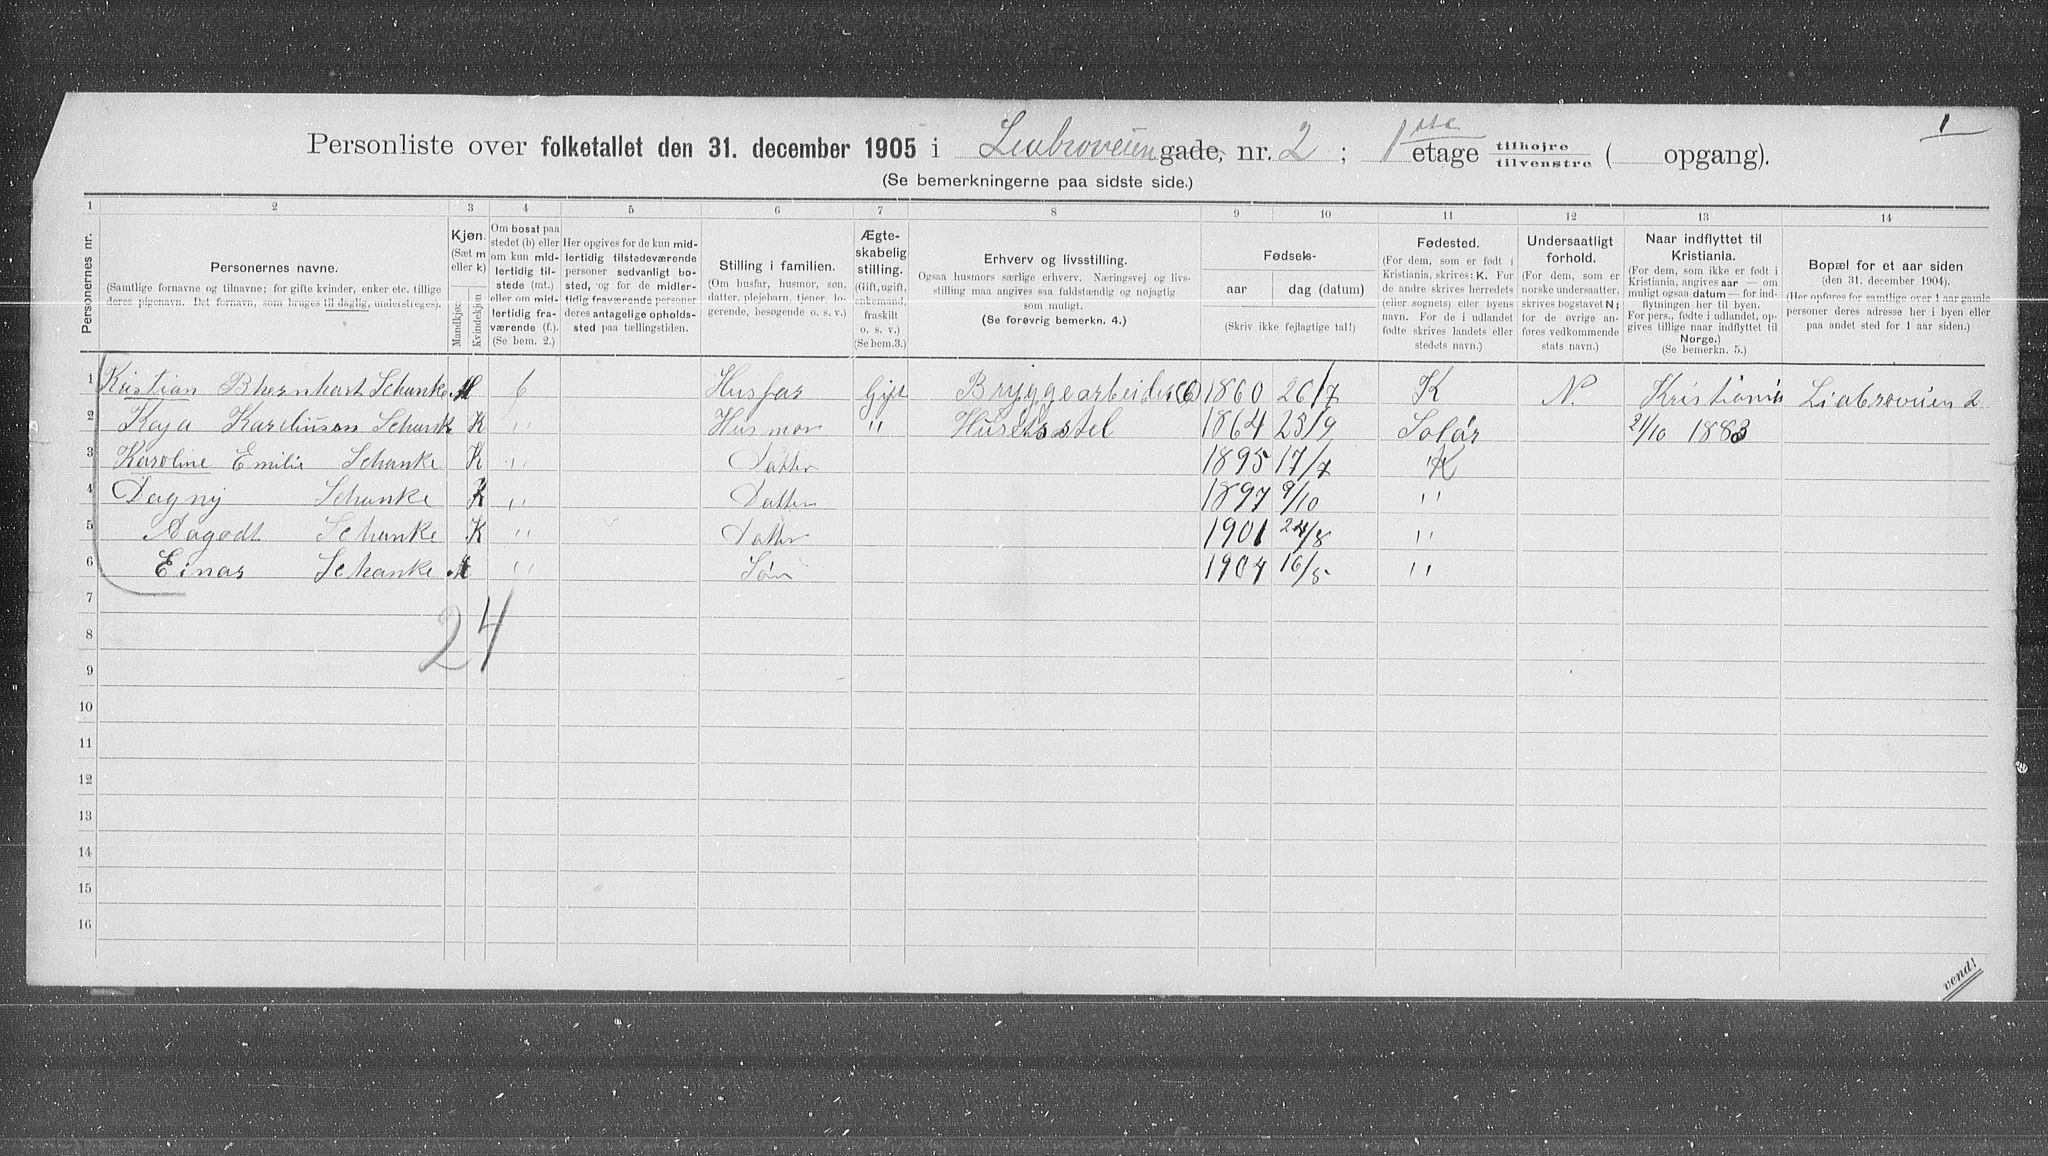 1
Personliste over folketallet den 31. december 1905 i Liabroveien gade, nr. 2 ; 1ste etage tilhøjre tilvenstre ( opgang).
(Se bemerkningerne paa sidste side.)
1 2 3 4 5 6 7 8 9 10 11 12 13 14
Personernes nr.
Personernes navne.
(Samtlige fornavne og tilnavne; for gifte kvinder, enker etc. tillige
deres pigenavn. Det fornavn, som bruges til daglig, understreges).
Kjøn.
(Sæt m
eller k)
Mandkjøn.
Kvindekjøn
Om bosat paa
stedet (b) eller
om kun mid-
lertidig til-
stede (mt.)
eller om mid-
lertidig fra-
værende (f.).
(Se bem. 2.)
Her opgives for de kun mid-
lertidig tilstedeværende
personer sedvanligt bo-
sted, og for de midler-
tidig fraværende personer
deres antagelige opholds-
sted paa tællingstiden.
Stilling i familien.
(Om husfar, husmor, søn,
datter, plejebarn, tjener, lo-
gerende, besøgende o. s. v.)
Ægte-
skabelig
stilling.
(Gift, ugift,
enkemand,
fraskilt
o. s. v.)
(Se bem.3.)
Erhverv og livsstilling.
Ogsaa husmors særlige erhverv. Næringsvej og livs-
stilling maa angives saa fuldstændig og nøjagtig
som muligt.
(Se forøvrig bemerkn. 4.)
Fødsels-
aar dag (datum)
(Skriv ikke fejlagtige tal!)
Fødested.
(For dem, som er født i
Kristiania, skrives: K. For
de andre skrives herredets
(eller sognets) eller byens
navn. For de i udlandet
fødte skrives landets eller
stedets navn.)
Undersaatligt
forhold.
(For dem, som er
norske undersaatter,
skrives bogstavet N;
for de øvrige an-
føres vedkommende
stats navn.)
Naar indflyttet til
Kristiania.
(For dem, som ikke er født i
Kristiania, angives aar — om
muligt ogsaa datum — for ind-
flytningen her til byen.
For pers., fødte i udlandet, op-
gives tillige naar indflyttet til
Norge.)
(Se bemerkn. 5.)
Bopæl for et aar siden
(den 31. december 1904).
(Her opføres for samtlige over 1 aar gamle
personer deres adresse her i byen eller
paa andet sted for 1 aar siden.)
1 Kristian Bhernhart Schanke M b Husfar Gift Bryggearbeider (6) 1860 26/7 K N. Kristiania Liabroveien 2
2 Kaja Schank K " Husmor " Husets stel 1864 23/9 Solør 21/10 1883
3 Karoline Emilie Schanke K " Datter 1895 17/7 K
4 Dagny Schanke K " Datter 1897 9/10 "
5 Aagodt Schanke K " Datter 1901 24/8 "
6 Einar Schanke M " Søn 1904 16/5 "
7
24
8
9
10
11
12
13
14
15
16
vend!